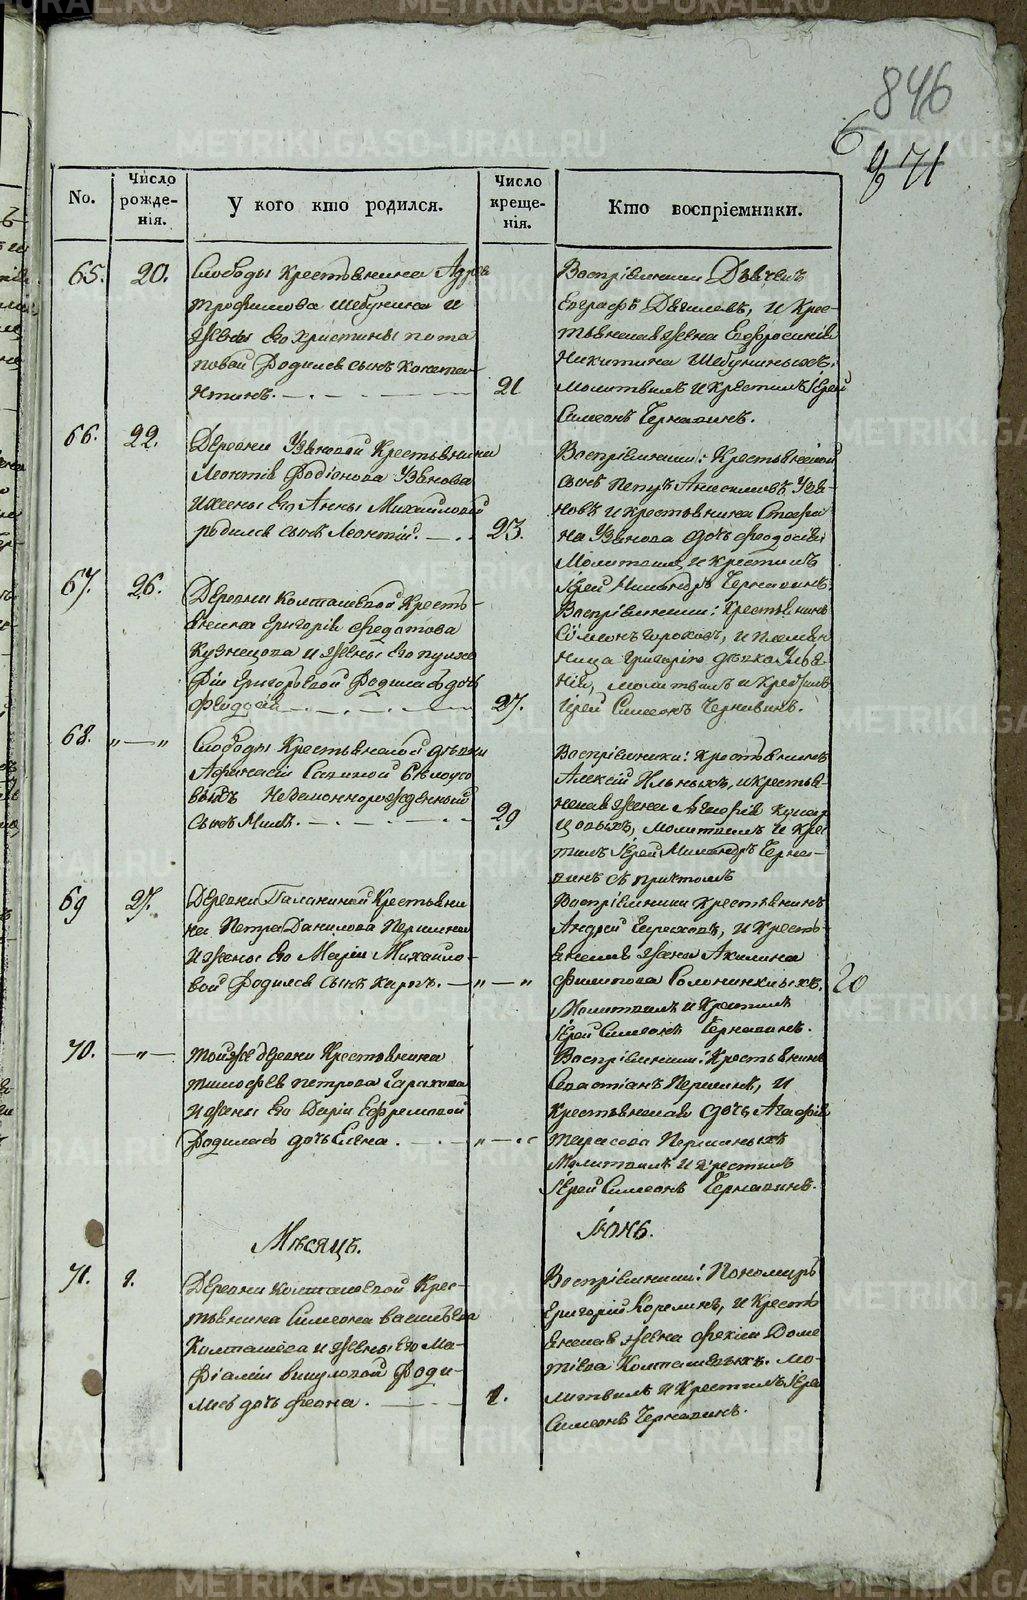 846
6
871
No.
Число рожде-нія.
У кого кто родился.
Число креще-нія.
Кто воспріемники.
65.
20.
Слободы Крестьянина
Трофимова Шебунина и
жены его Христины Пота
повой родился сынъ Конста
нтинъ.
21
Воспріемники
Евграфъ Даниловъ, и Крес-
тьянская жена Евфросинія
Никитина Шебуниныхъ.
Молитвилъ и крестилъ Іерей
Симеонъ Чернавинъ.
66.
22.
Деревни Узяновой Крестьянина
Леонтія Родіонова Узянова
и жены его Анны Михайловой
родился сынъ Леонтій.
23.
Воспріемники: Крестьянской
сынъ Петръ Анисимовъ Узя-
новъ и крестьянина Стефа
на Узянова дочь Феодосія
Молитвилъ и крестилъ
Іерей Чернавинъ.
67.
26.
Деревни Колташевой Кресть-
янина Григорія Федотова
Кузнецова и жены его Пулхе
ріи Григорьевой родилась дочь
27.
Воспріемники: Крестьянинъ
Симеонъ Гороховъ, и Племян
ница Григорію дѣвка Улья-
нія, молитвилъ и крестилъ
Іерей Симеонъ Чернавинъ.
68.
„—„
Слободы Крестьянской дѣвки
Афанасіи Савиной Бѣлоусо
выхъ Незаконнорожденный
сынъ
29
Воспріемники: Крестьянинъ
Алексій Ильиныхъ, и крестья-
нская жена Агафія
молитвилъ и крес
тилъ Іерей Черна-
винъ съ причтомъ
69
27.
Деревни Галаниной Крестьяни
на Петра Данилова Першина
и жены его Маріи Михайло-
вой родился сынъ Карпъ.
„—„
Воспріемники Крестьянинъ
Андрей и Кресть-
янская жена Акилина
Филипова Солонинкиныхъ.
Молитвилъ и Крестилъ
Іерей Симеонъ Чернавинъ.
20
70.
—„—
Тойже деревни Крестьянина
Тимофея Петрова
и жены его Даріи Ефремовой
родилась дочь Елена.
„—„
Воспріемники: Крестьянинъ
Севастіанъ Першинъ, и
Крестьянская дочь Агафія
Тарасова Першиныхъ
Молитвилъ и Крестилъ
Іерей Симеонъ Чернавинъ.
Мѣсяцъ.
Іюнь.
71.
1.
Деревни Колташевой Крес-
тьянина Симеона Васильева
Колташева и жены его Ма-
роди-
лась дочь Феона.
1.
Воспріемники: Пономарь
Григорій Корелинъ, и Кресть
янская жена Домe
тіева Колташевыхъ. Мо-
литвилъ и Крестилъ Іерей
Симеонъ Чернавинъ.